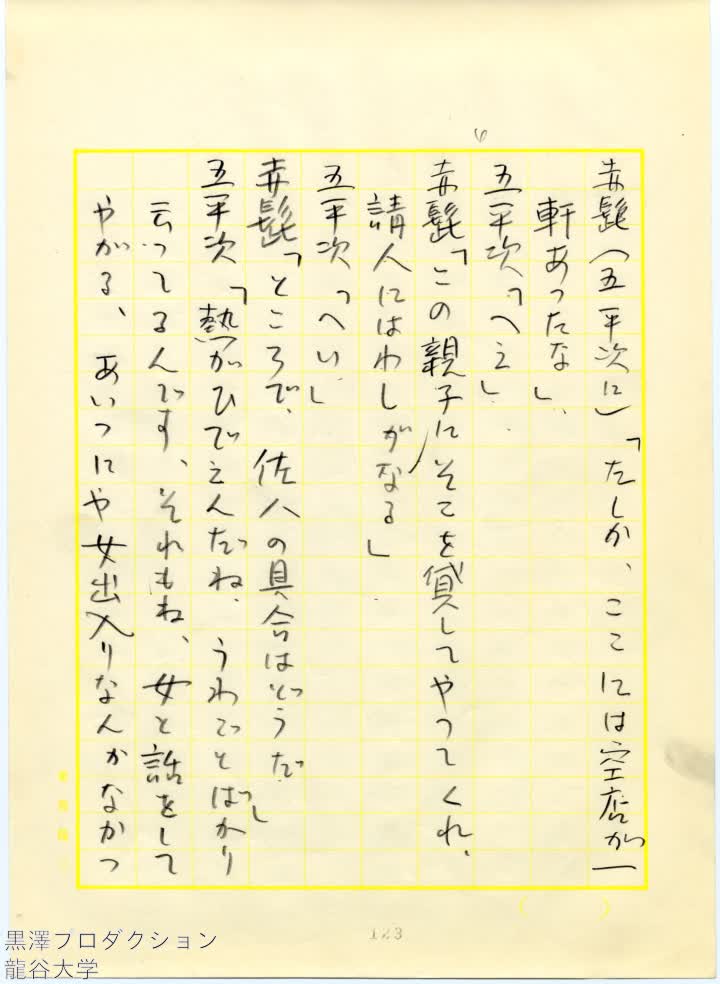 赤髭(五平次に)「たしか、ここには空店が一
軒あったな」
五平次「へえ」
赤髭「この親子にそこを貸してやってくれ、
請人にはわしがなる」
五平次「へい」
赤髭「ところで、佐八の具合はどうだ」
五平次「熱がひでえんだね、うわごとばっかり
云ってるんです、それもね、女と話をして
やがる、あいつにや女出入りなんかなかつ
123
黒澤プロダクション
龍谷大学